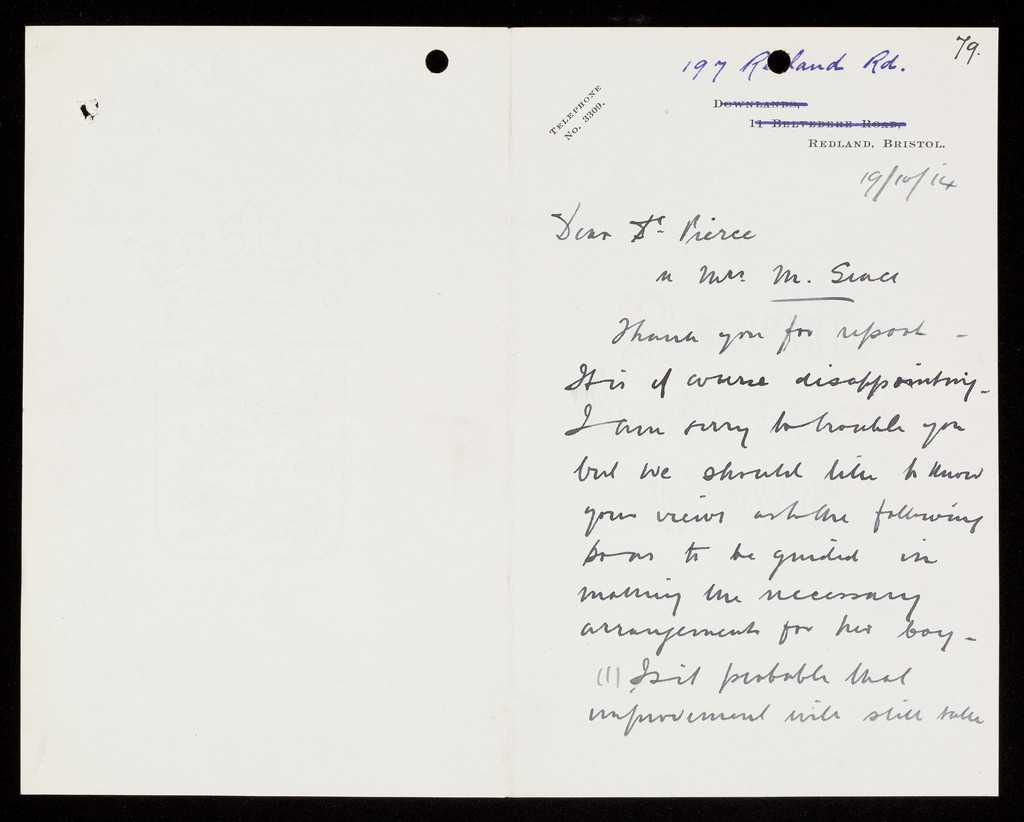 79.
197 Redland Rd.
TELEPHONE
NO. 3309.
DOWNLANDS,
11 BELVEDERE ROAD,
REDLAND, BRISTOL.
19/10/14
Dear Dr Pierce
re Mrs M. Grace
Thank you for report -
It is of course disappointing -
I am sorry to trouble you
but we should like to know
your views as to the following
so as to be guided in
making the necessary
arrangements for her boy -
(1) Is it probable that
improvement will still take